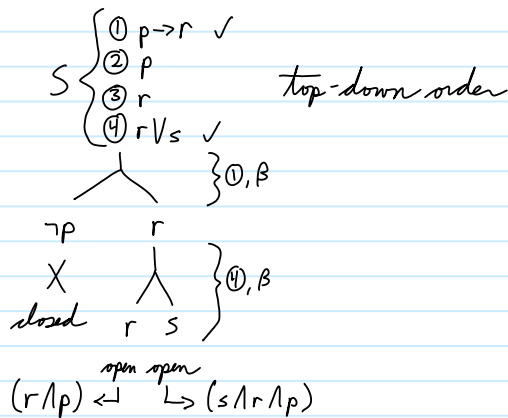 ① p→r ✓
② p
S
③ r
top-down order
④ r∨s ✓
①, β
¬p r
X
④, β
closed r s
open open
(r∧p) ↵ ↳ (s∧r∧p)